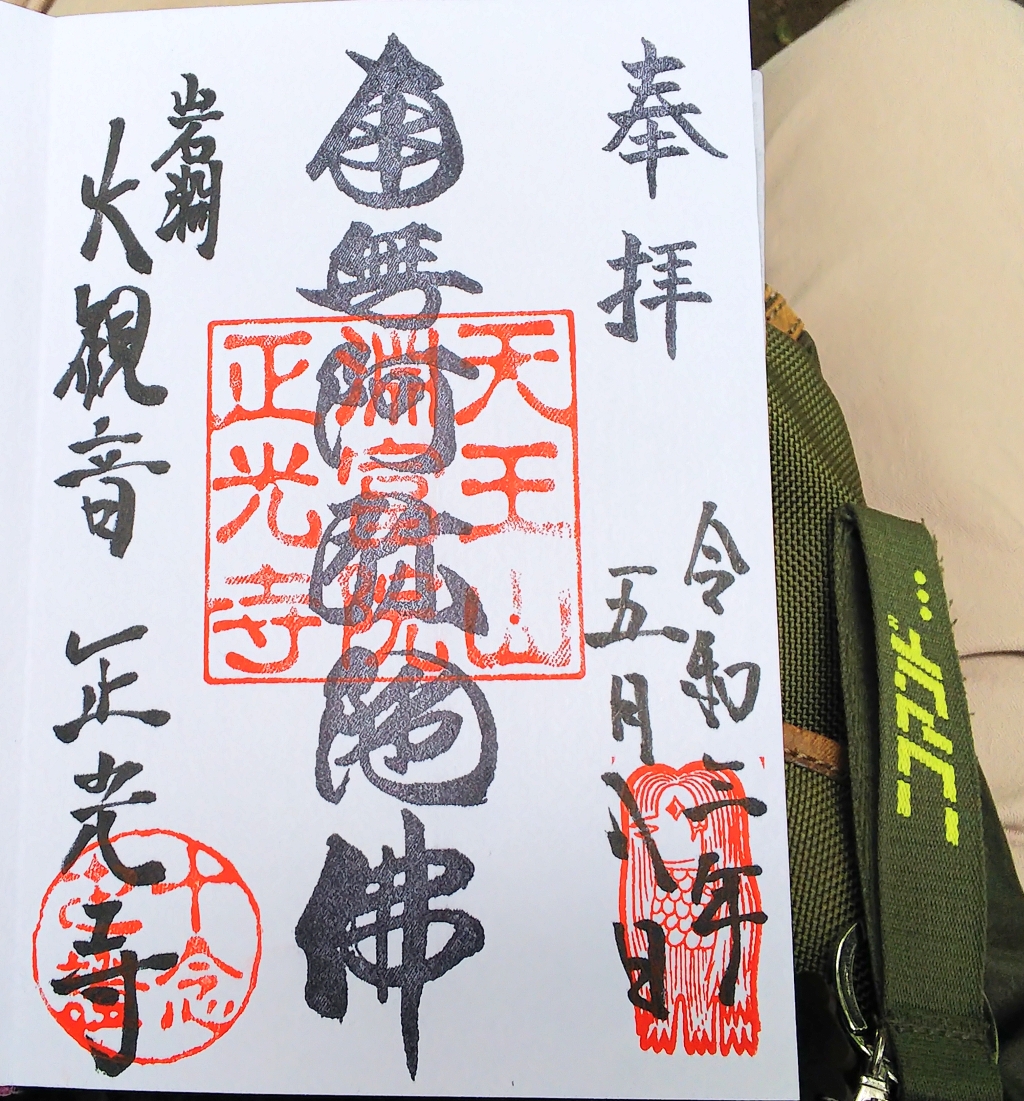 奉拝
令和三年
五月八日
南無阿弥陀佛
天王山
淵富院
正光寺
岩淵
大観音 正光寺
十念